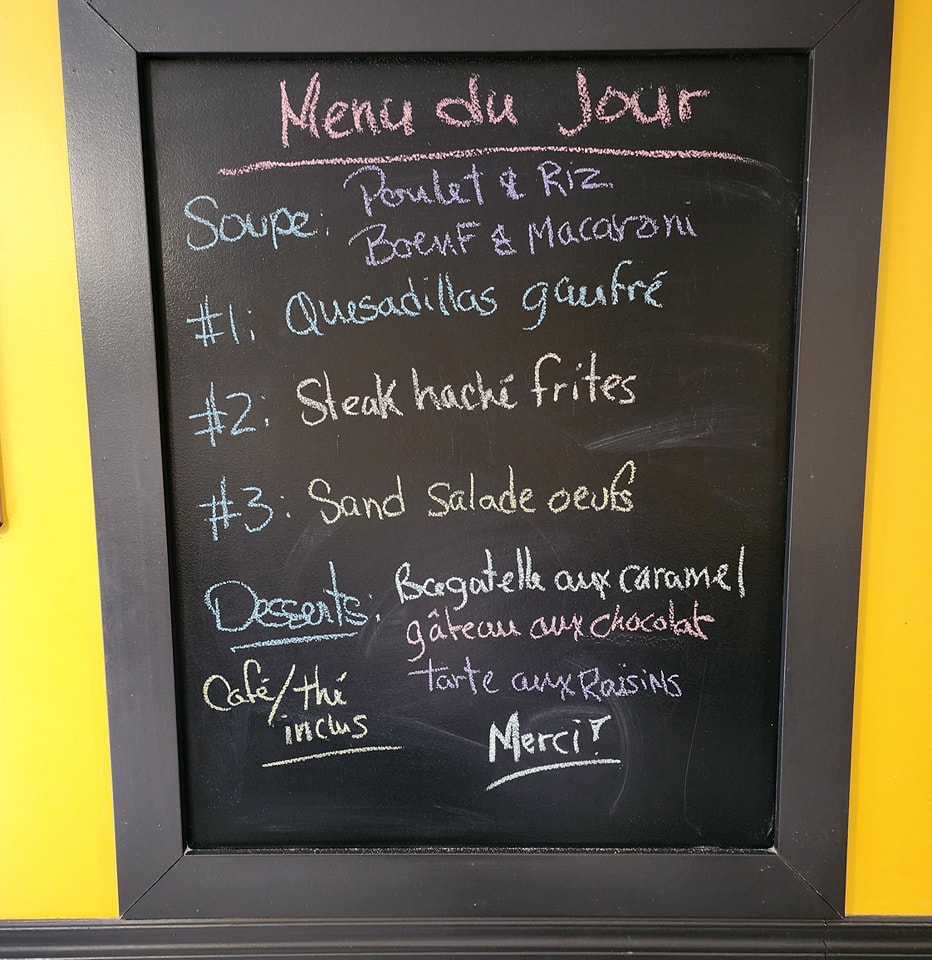 Menu du Jour
Soupe: Poulet & Riz
Boeuf & Macaroni
#1: Quesadillas gaufré
#2: Steak haché frites
#3: Sand salade oeufs
Desserts: Bagatelle aux caramel
gâteau aux chocolat
tarte aux Raisins
Café/thé
inclus
Merci!